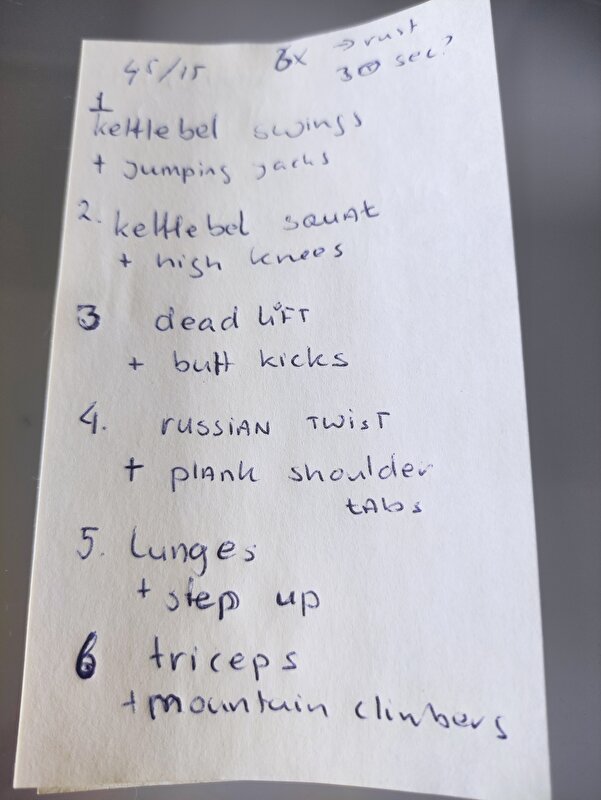 45/15 3x → rust
30 sec?
1
kettlebel swings
+ jumping jacks
2. kettlebel squat
+ high knees
3 dead lift
+ butt kicks
4. russian twist
+ plank shoulder
tabs
5. Lunges
+ step up
6 triceps
+ mountain climbers